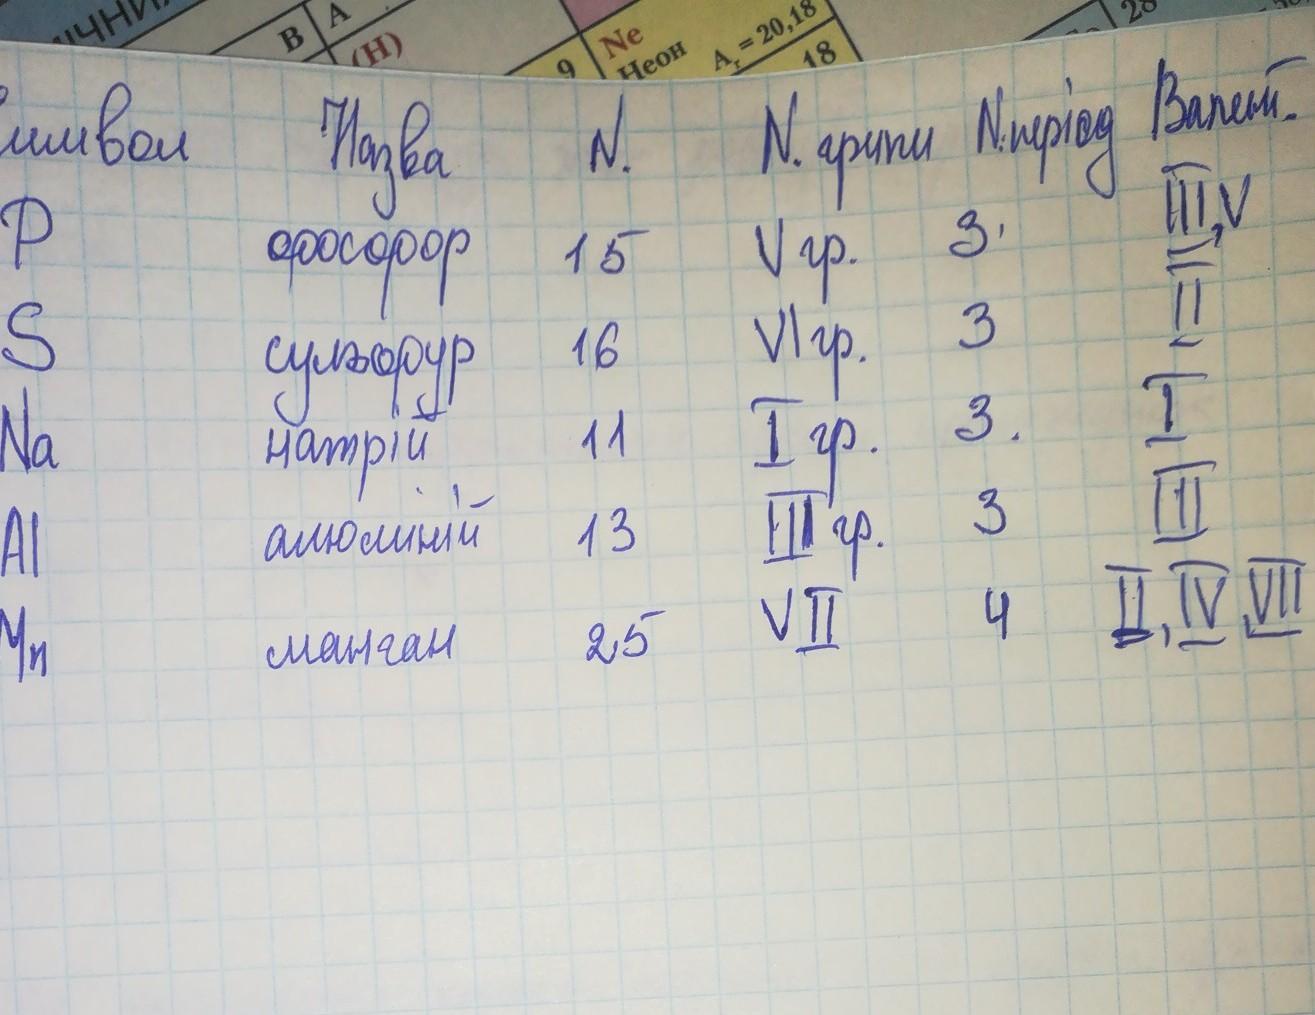 ІЧНИ
В А
(H)
9 Ne
Неон
Ar = 20,18
18
28
Символ Назва N. N. групи N.період Валент.
P фосфор 15 V гр. 3. III, V
S сульфур 16 VI гр. 3 II
Na натрій 11 I гр. 3. I
Al алюміній 13 III гр. 3 III
Mn манган 25 VII 4 II, IV, VII